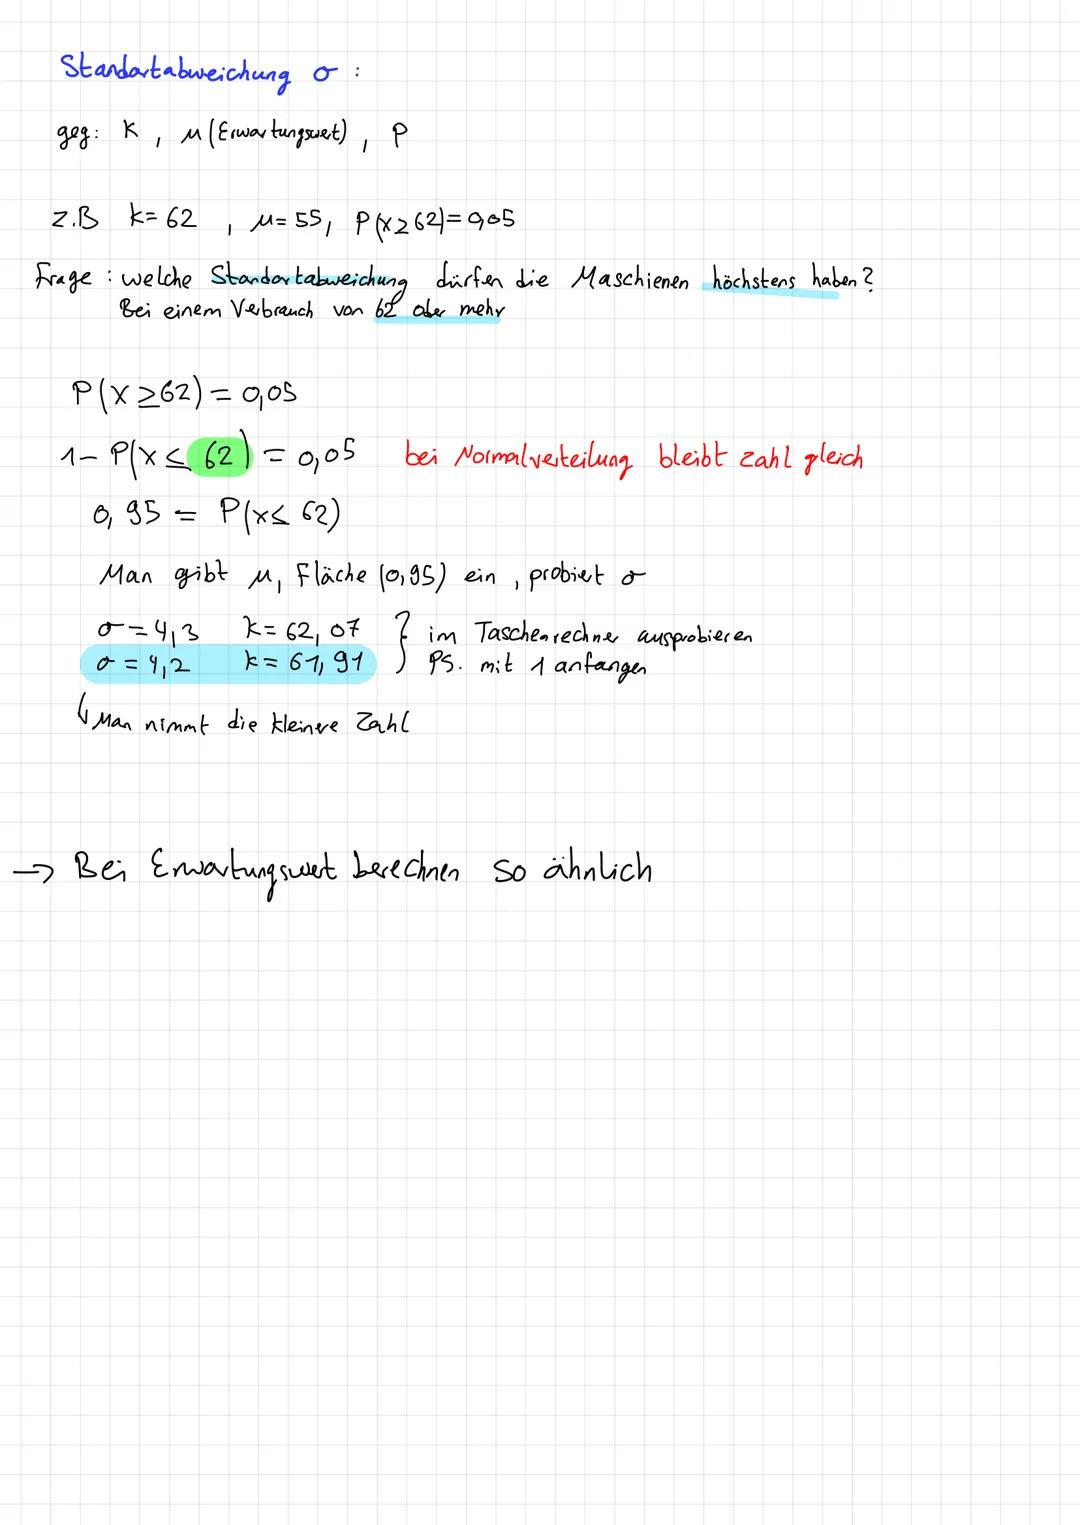 Standartabweichung σ :
geg: K , μ (Erwartungswert) , P
z.B k= 62 , μ= 55, P(X≥62)=0,05
Frage : welche Standortabweichung dürfen die Maschienen höchstens haben?
Bei einem Verbrauch von 62 oder mehr
P(X≥62)= 0,05
1- P(X≤ 62) = 0,05 bei Normalverteilung bleibt zahl gleich
0,95 = P(x≤ 62)
Man gibt μ, Fläche (0,95) ein , probiert σ
σ=4,3 k= 62,07 } im Taschenrechner ausprobieren
σ = 4,2 k= 61,91 PS. mit 1 anfangen
↳ Man nimmt die kleinere Zahl
→ Bei Erwartungswert berechnen so ähnlich